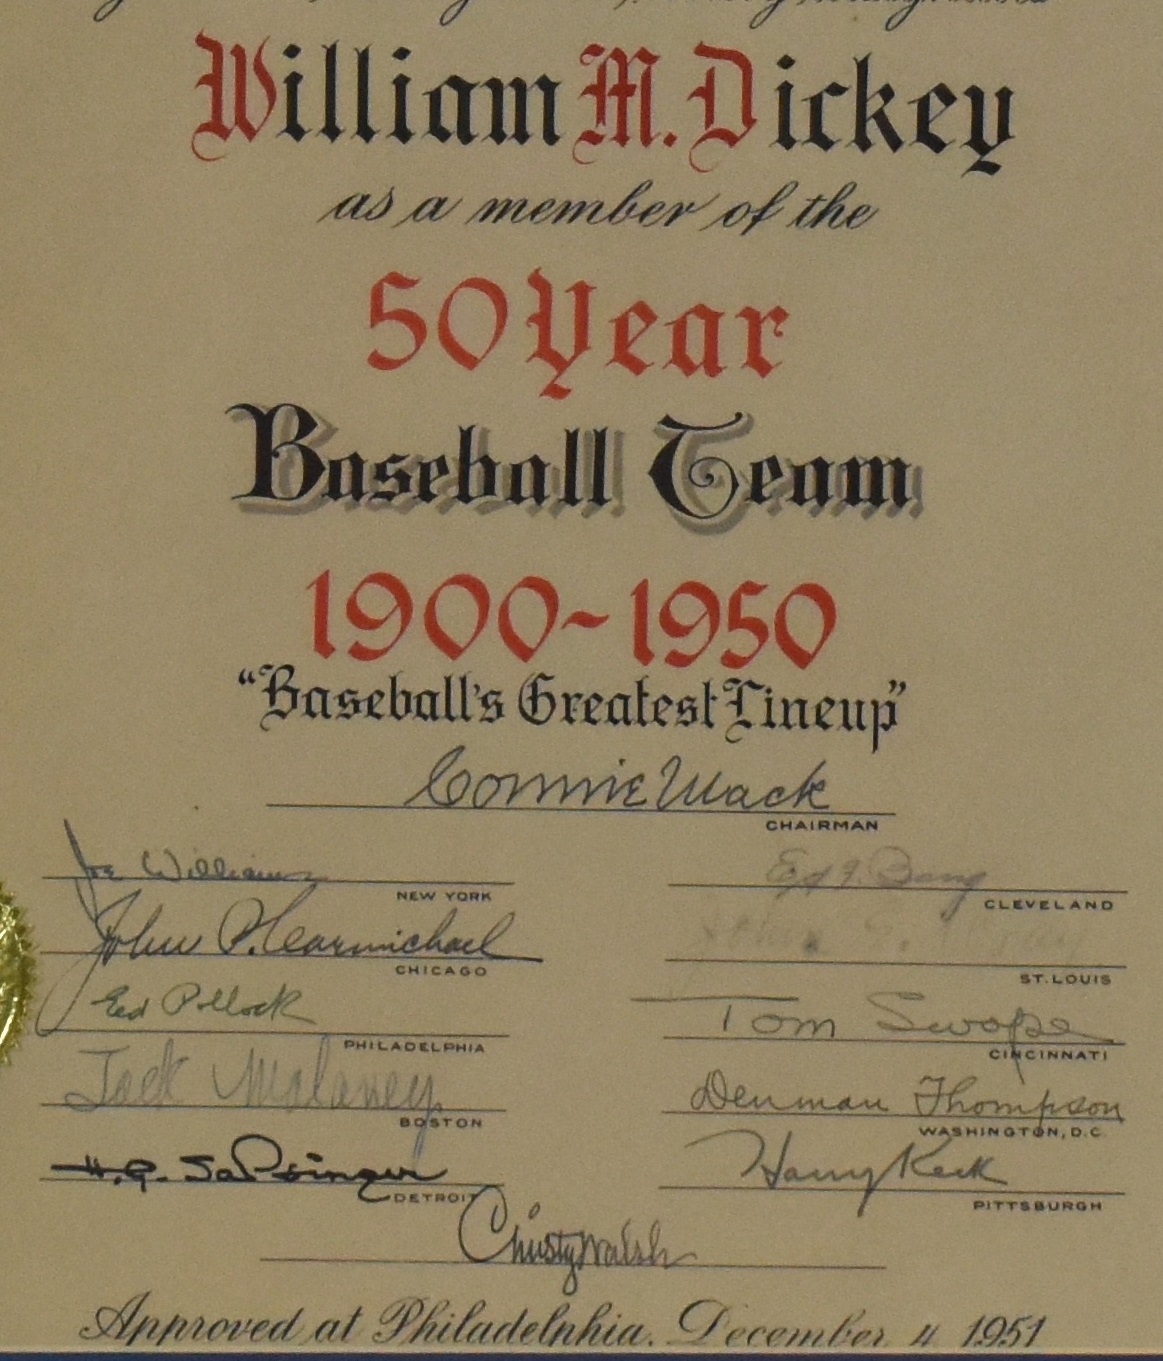 William M. Dickey
as a member of the
50 Year
Baseball Team
1900-1950
"Baseball's Greatest Lineup"
Connie Mack
CHAIRMAN
Joe Williams
NEW YORK
John P. Carmichael
CHICAGO
Ed Pollock
PHILADELPHIA
Jack Malaney
BOSTON
H.G. Salsinger
DETROIT
Ed F. Bang
CLEVELAND
John E.
ST. LOUIS
Tom Swope
CINCINNATI
Denman Thompson
WASHINGTON, D.C.
Harry Keck
PITTSBURGH
Christy Walsh
Approved at Philadelphia. December 4 1951